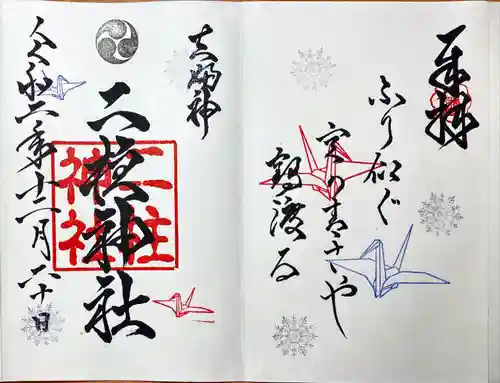 奉拝
ふり仰ぐ
空の青さや
鶴渡る
夫婦神
二柱神社
二柱
神社
令和六年十二月二十日